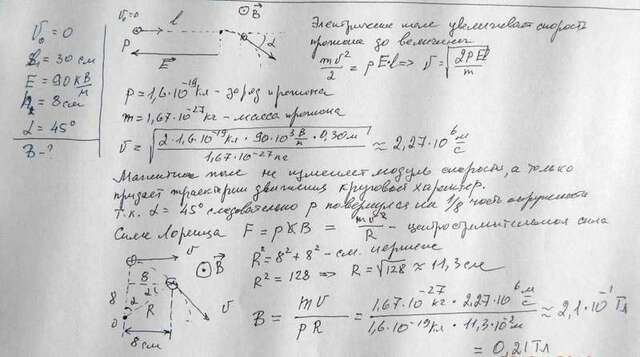 V₀ = 0
l₁ = 30 см
E = 90 кВ/м
l₂ = 8 см
α = 45°
B - ?
V₀=0
l
⊙ B⃗
P
E⃗
α
Электрическое поле увеличивает скорость
протона до величины
mv²/2 = pEl ⇒ v = √(2pEl/m)
p = 1,6·10⁻¹⁹ Кл - заряд протона
m = 1,67·10⁻²⁷ кг - масса протона
v = √(2·1,6·10⁻¹⁹Кл · 90·10³ В/м · 0,30м / 1,67·10⁻²⁷кг) ≈ 2,27·10⁶ м/с
Магнитное поле не изменяет модуль скорости, а только
придает траектории движения круговой характер.
Т.к. α = 45° следовательно p повернулся на 1/8 часть окружности
Сила Лоренца F = pVB = mv²/R - центростремительная сила
R² = 8² + 8² - см. чертеж
R² = 128 ⇒ R = √128 ≈ 11,3 см
B = mv/pR = 1,67·10⁻²⁷ кг · 2,27·10⁶ м/с / 1,6·10⁻¹⁹Кл · 11,3·10⁻²м ≈ 2,1·10⁻¹ Тл
= 0,21 Тл
v
⊙ B⃗
8
R
v
α
0
8 см